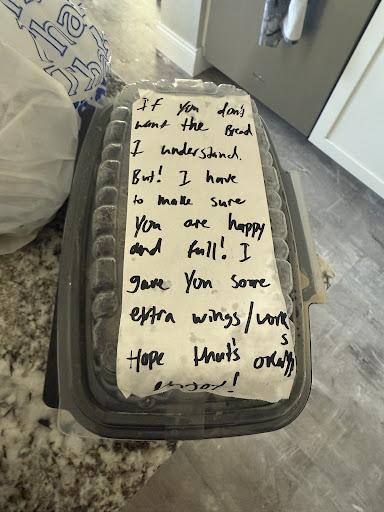 If you don't
want the Bread
I understand.
But! I have
to make sure
You are happy
and full! I
gave you some
extra wings/
Hope that's okay